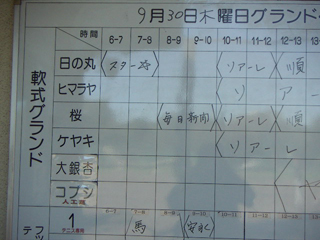 9月30日木曜日グランド
時間 6-7 7-8 8-9 9-10 10-11 11-12 12-13
軟式グランド
日の丸 リアーレ 順
ヒマラヤ リア
桜 毎日新聞 リアーレ 順
ケヤキ リアーレ
大銀杏
コブシ
人工芝
6-7 7-8 8-9 9-10 10-11 11-12 12-13
1 馬
テニス専用